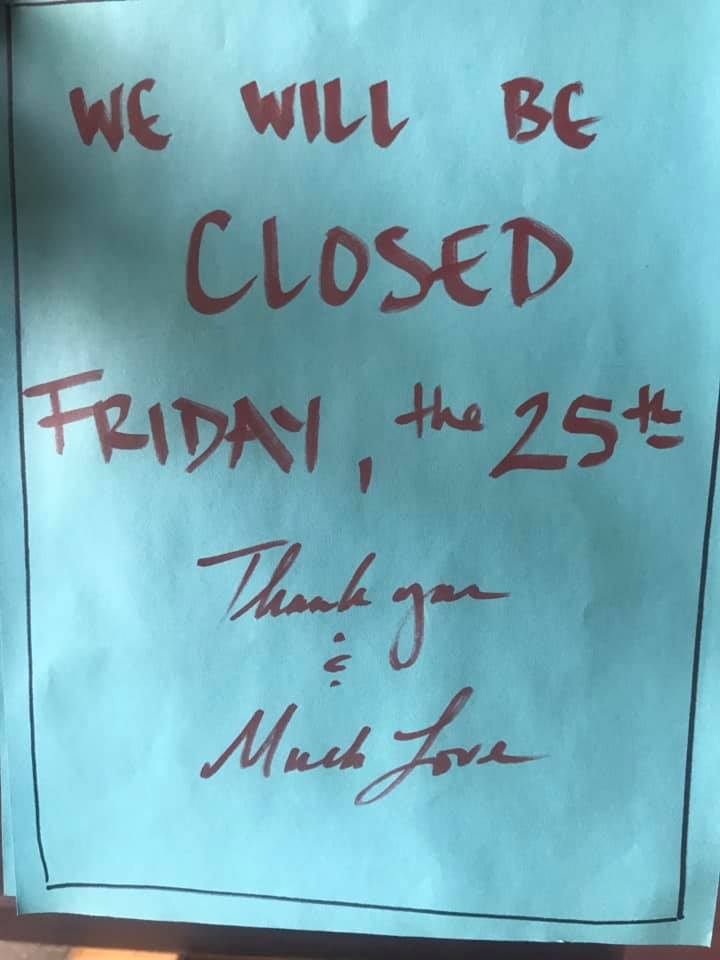 WE WILL BE
CLOSED
FRIDAY, the 25th
Thank you
&
Much Love